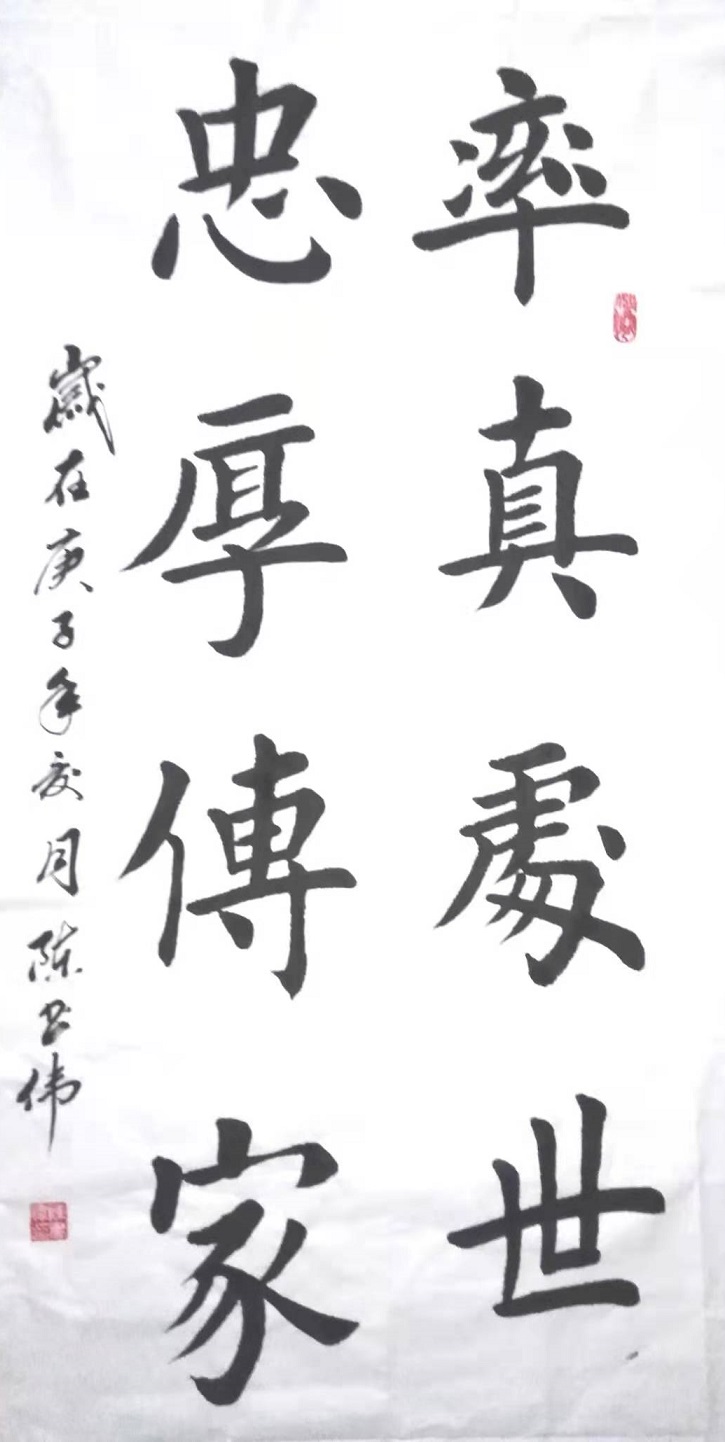 率真處世
忠厚傳家
歲在庚子年夏月陈卫伟